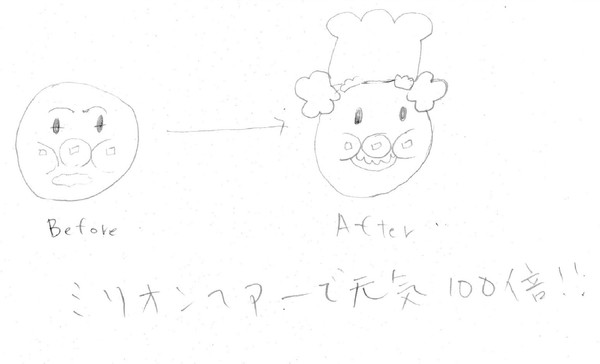 Before
After
ミリオンヘアーで元気100倍!!